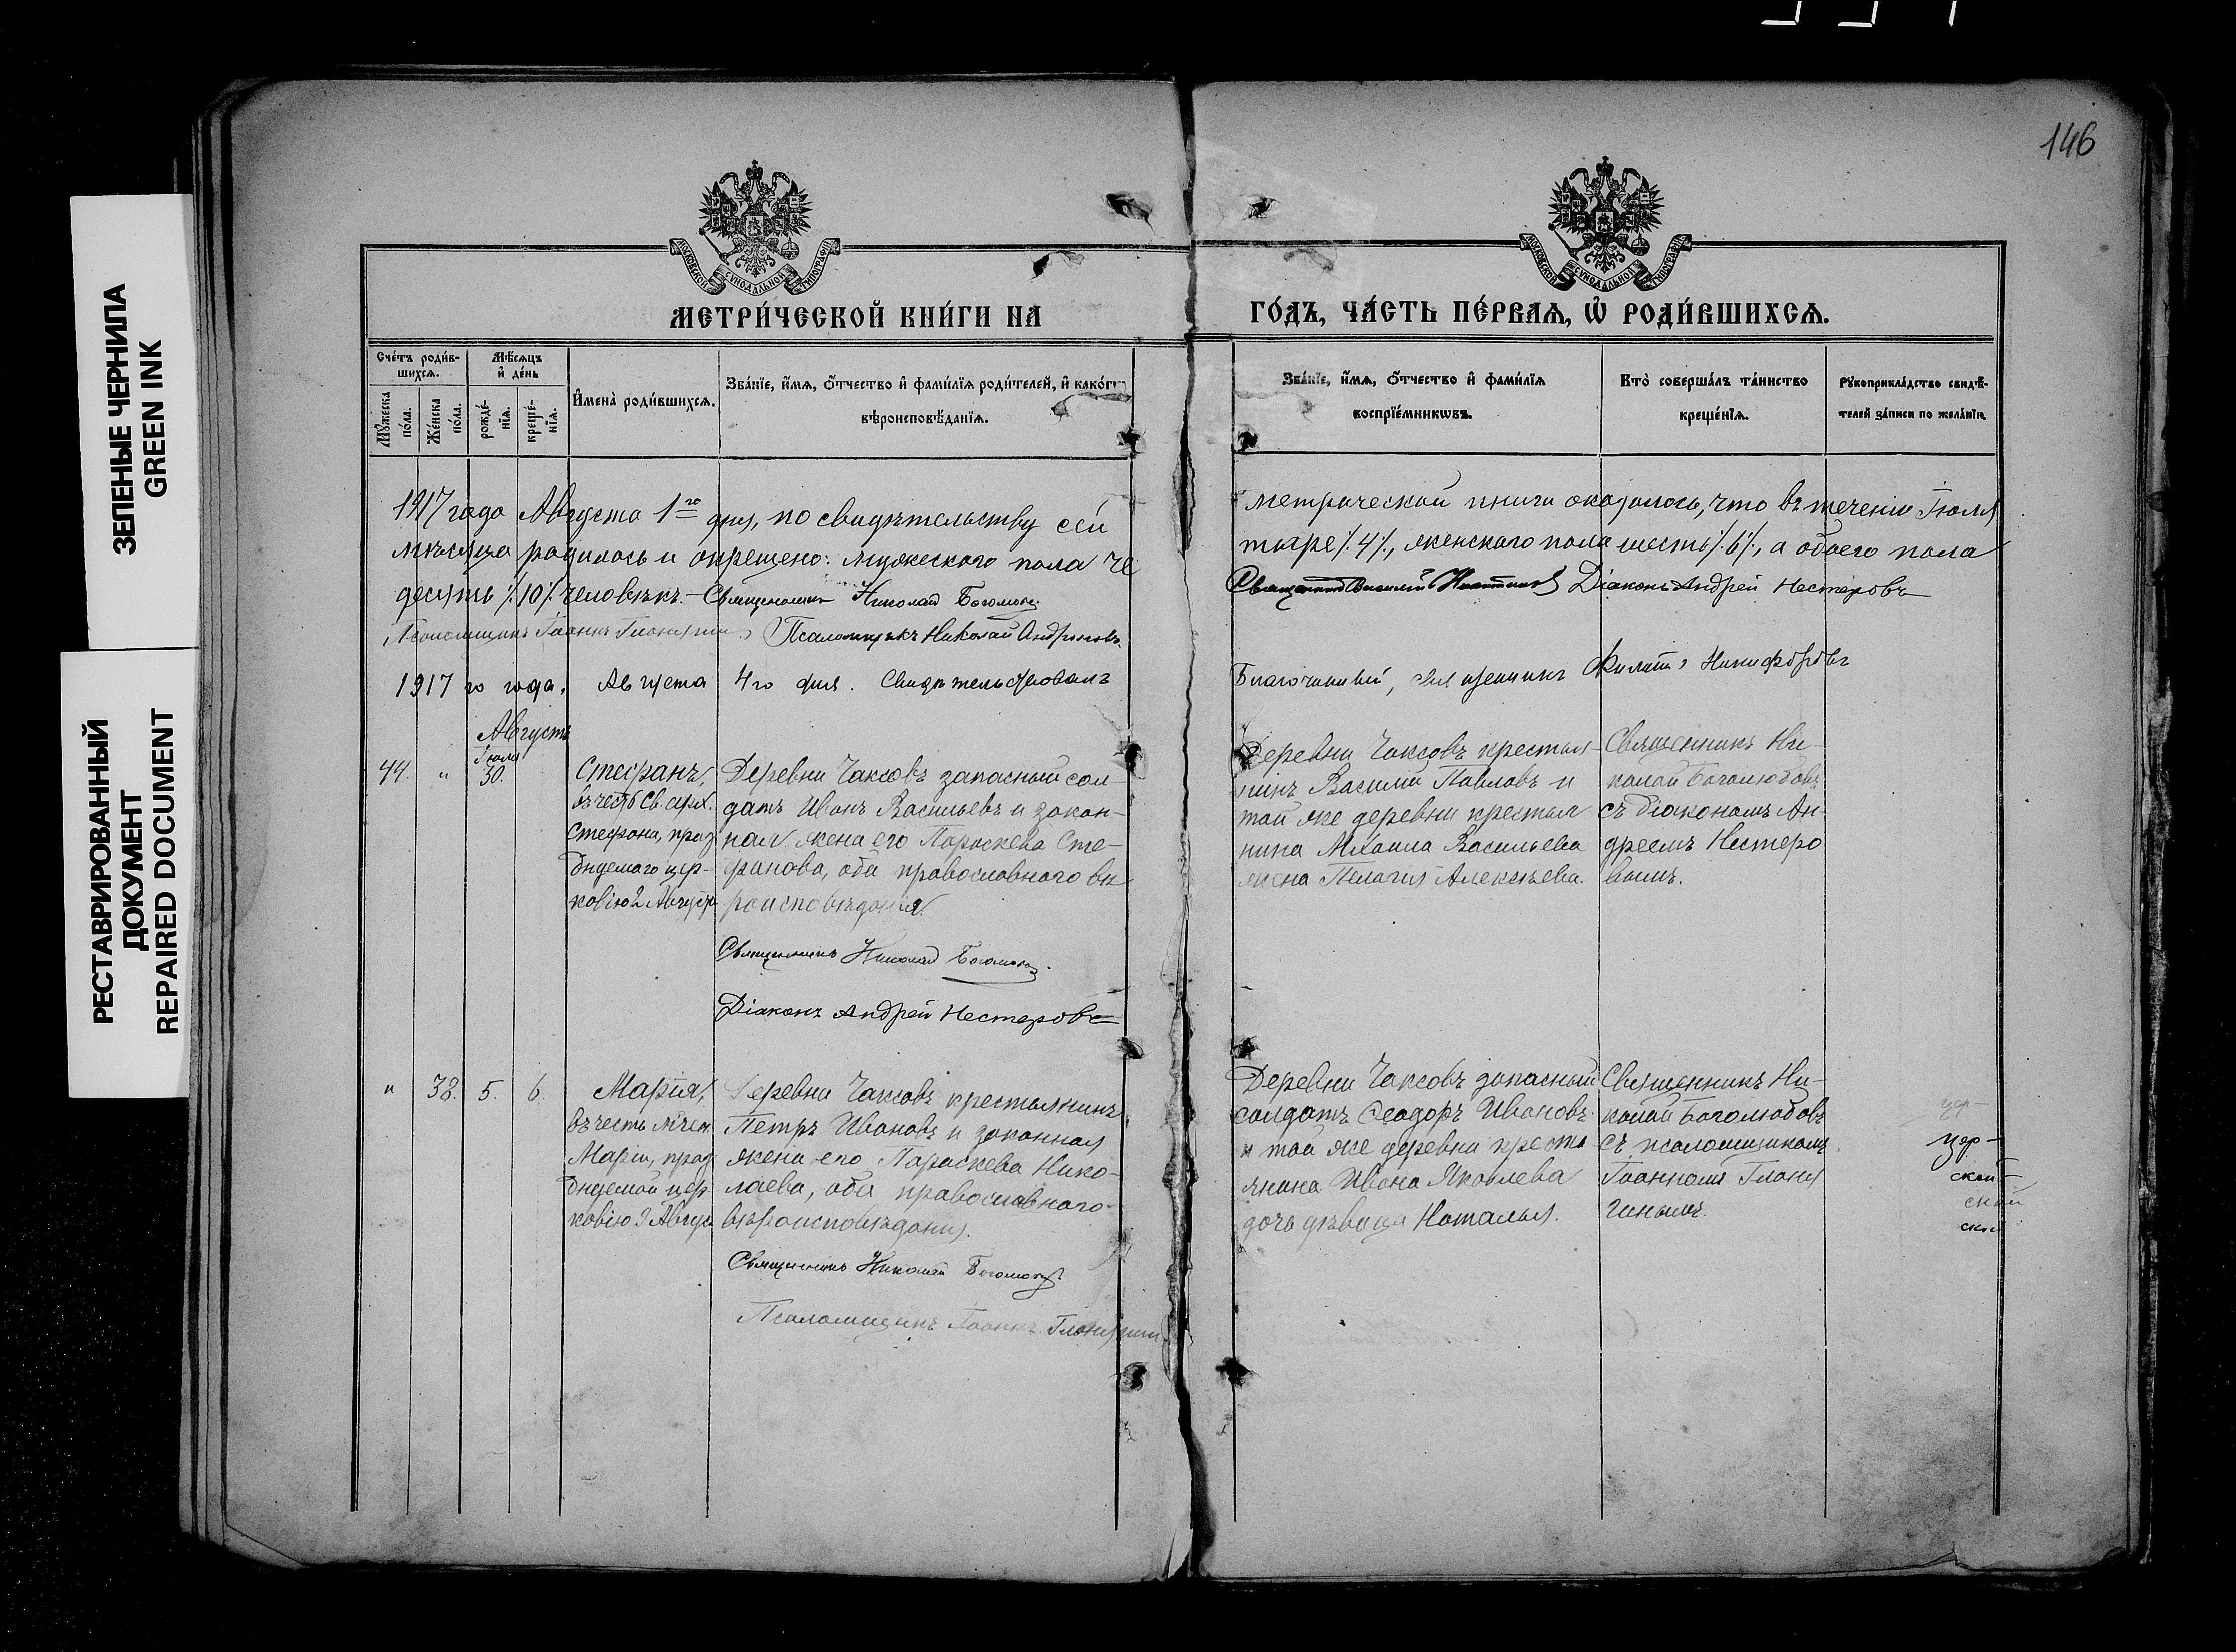 146
ЗЕЛЕНЫЕ ЧЕРНИЛА
GREEN INK
РЕСТАВРИРОВАННЫЙ
ДОКУМЕНТ
REPAIRED DOCUMENT
МОСКОВСКОЙ СѴНОДАЛЬНОЙ ТИПОГРАФІИ
МОСКОВСКОЙ СѴНОДАЛЬНОЙ ТИПОГРАФІИ
МЕТРИ́ЧЕСКОЙ КНИ́ГИ НА
ГО́ДЪ, ЧА́СТЬ ПЕ́РВАѦ, Ѽ РОДИ́ВШИХСѦ.
Сче́тъ роди́в-
шихсѧ.
Мѣ́сѧцъ
и҆ де́нь
Мꙋ́жеска
по́ла.
Же́нска
по́ла.
рожде́-
нїѧ.
креще́-
нїѧ.
И҆мена̀ роди́вшихсѧ.
Зва́нїе, и҆́мѧ, ѻ҆́тчество и҆ фами́лїѧ роди́телей, и҆ како́гѡ
вѣроисповѣ́данїѧ.
Зва́нїе, и҆́мѧ, ѻ҆́тчество и҆ фами́лїѧ
воспрїе́мникѡвъ.
Кто̀ соверша́лъ та́инство
креще́нїѧ.
Рꙋкоприкла́дство свидѣ́-
телей за́писи по жела́нїю.
1917 года Августа 1го дня, по свидѣтельству сей
метрической книги оказалось, что въ теченіи Іюля
мѣсяца родилось и окрещено: мужеского пола че
тыре /.4/., женского пола шесть /.6/., а обоего пола
десять /.10/. человѣкъ. - Священникъ Николай Боголюбовъ
Священникъ Василій Діаконъ Андрей Нестеровъ
Псаломщикъ Іоаннъ Псаломщикъ Николай Андроновъ.
1917 го года, Августа 4го дня. Свидѣтельствовалъ
Благочинный, священникъ Филиппъ Никифоровъ
Августъ
Іюля
44. " 30.
Стефанъ,
въ честь Св. арх.
Стефана, праз
днуемаго цер-
ковію 2 Августа
Деревни Чаксовъ запасный сол
датъ Иванъ Васильевъ и закон-
ная жена его Параскева Сте-
фанова, оба православного вѣ
роисповѣданія.
Священникъ Николай Боголюбовъ.
Діаконъ Андрей Нестеровъ
Деревни Чаксовъ крестья-
нинъ Василій Павловъ и
той же деревни крестья
нина Михаила Васильева
жена Пелагія Алексѣева.
Священникъ Ни-
колай Боголюбовъ
съ діакономъ Ан-
дреемъ Нестеро
вымъ.
" 38. 5. 6.
Марія,
въ честь
Маріи, праз
днуемой цер-
ковію 9 Авгус
Деревни Чаксовъ крестьянинъ
Петръ Ивановъ и законная
жена его Параскева Нико-
лаева, оба православного
вѣроисповѣданія.
Священникъ Николай Боголюбовъ
Псаломщикъ Іоаннъ
Деревни Чаксовъ запасный
солдатъ Ѳеодоръ Ивановъ
и той же деревни кресть
янина Ивана Яковлева
дочь дѣвица Наталья.
Священникъ Ни-
колай Боголюбовъ
съ псаломщикомъ
Іоанномъ
цер-
цер-
ской
ской
ской